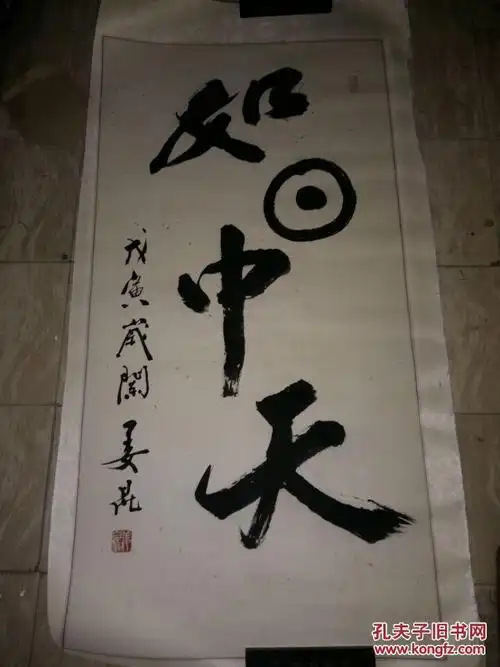 如日中天
戊寅岁阑 姜昆
孔夫子旧书网
www.kongfz.com